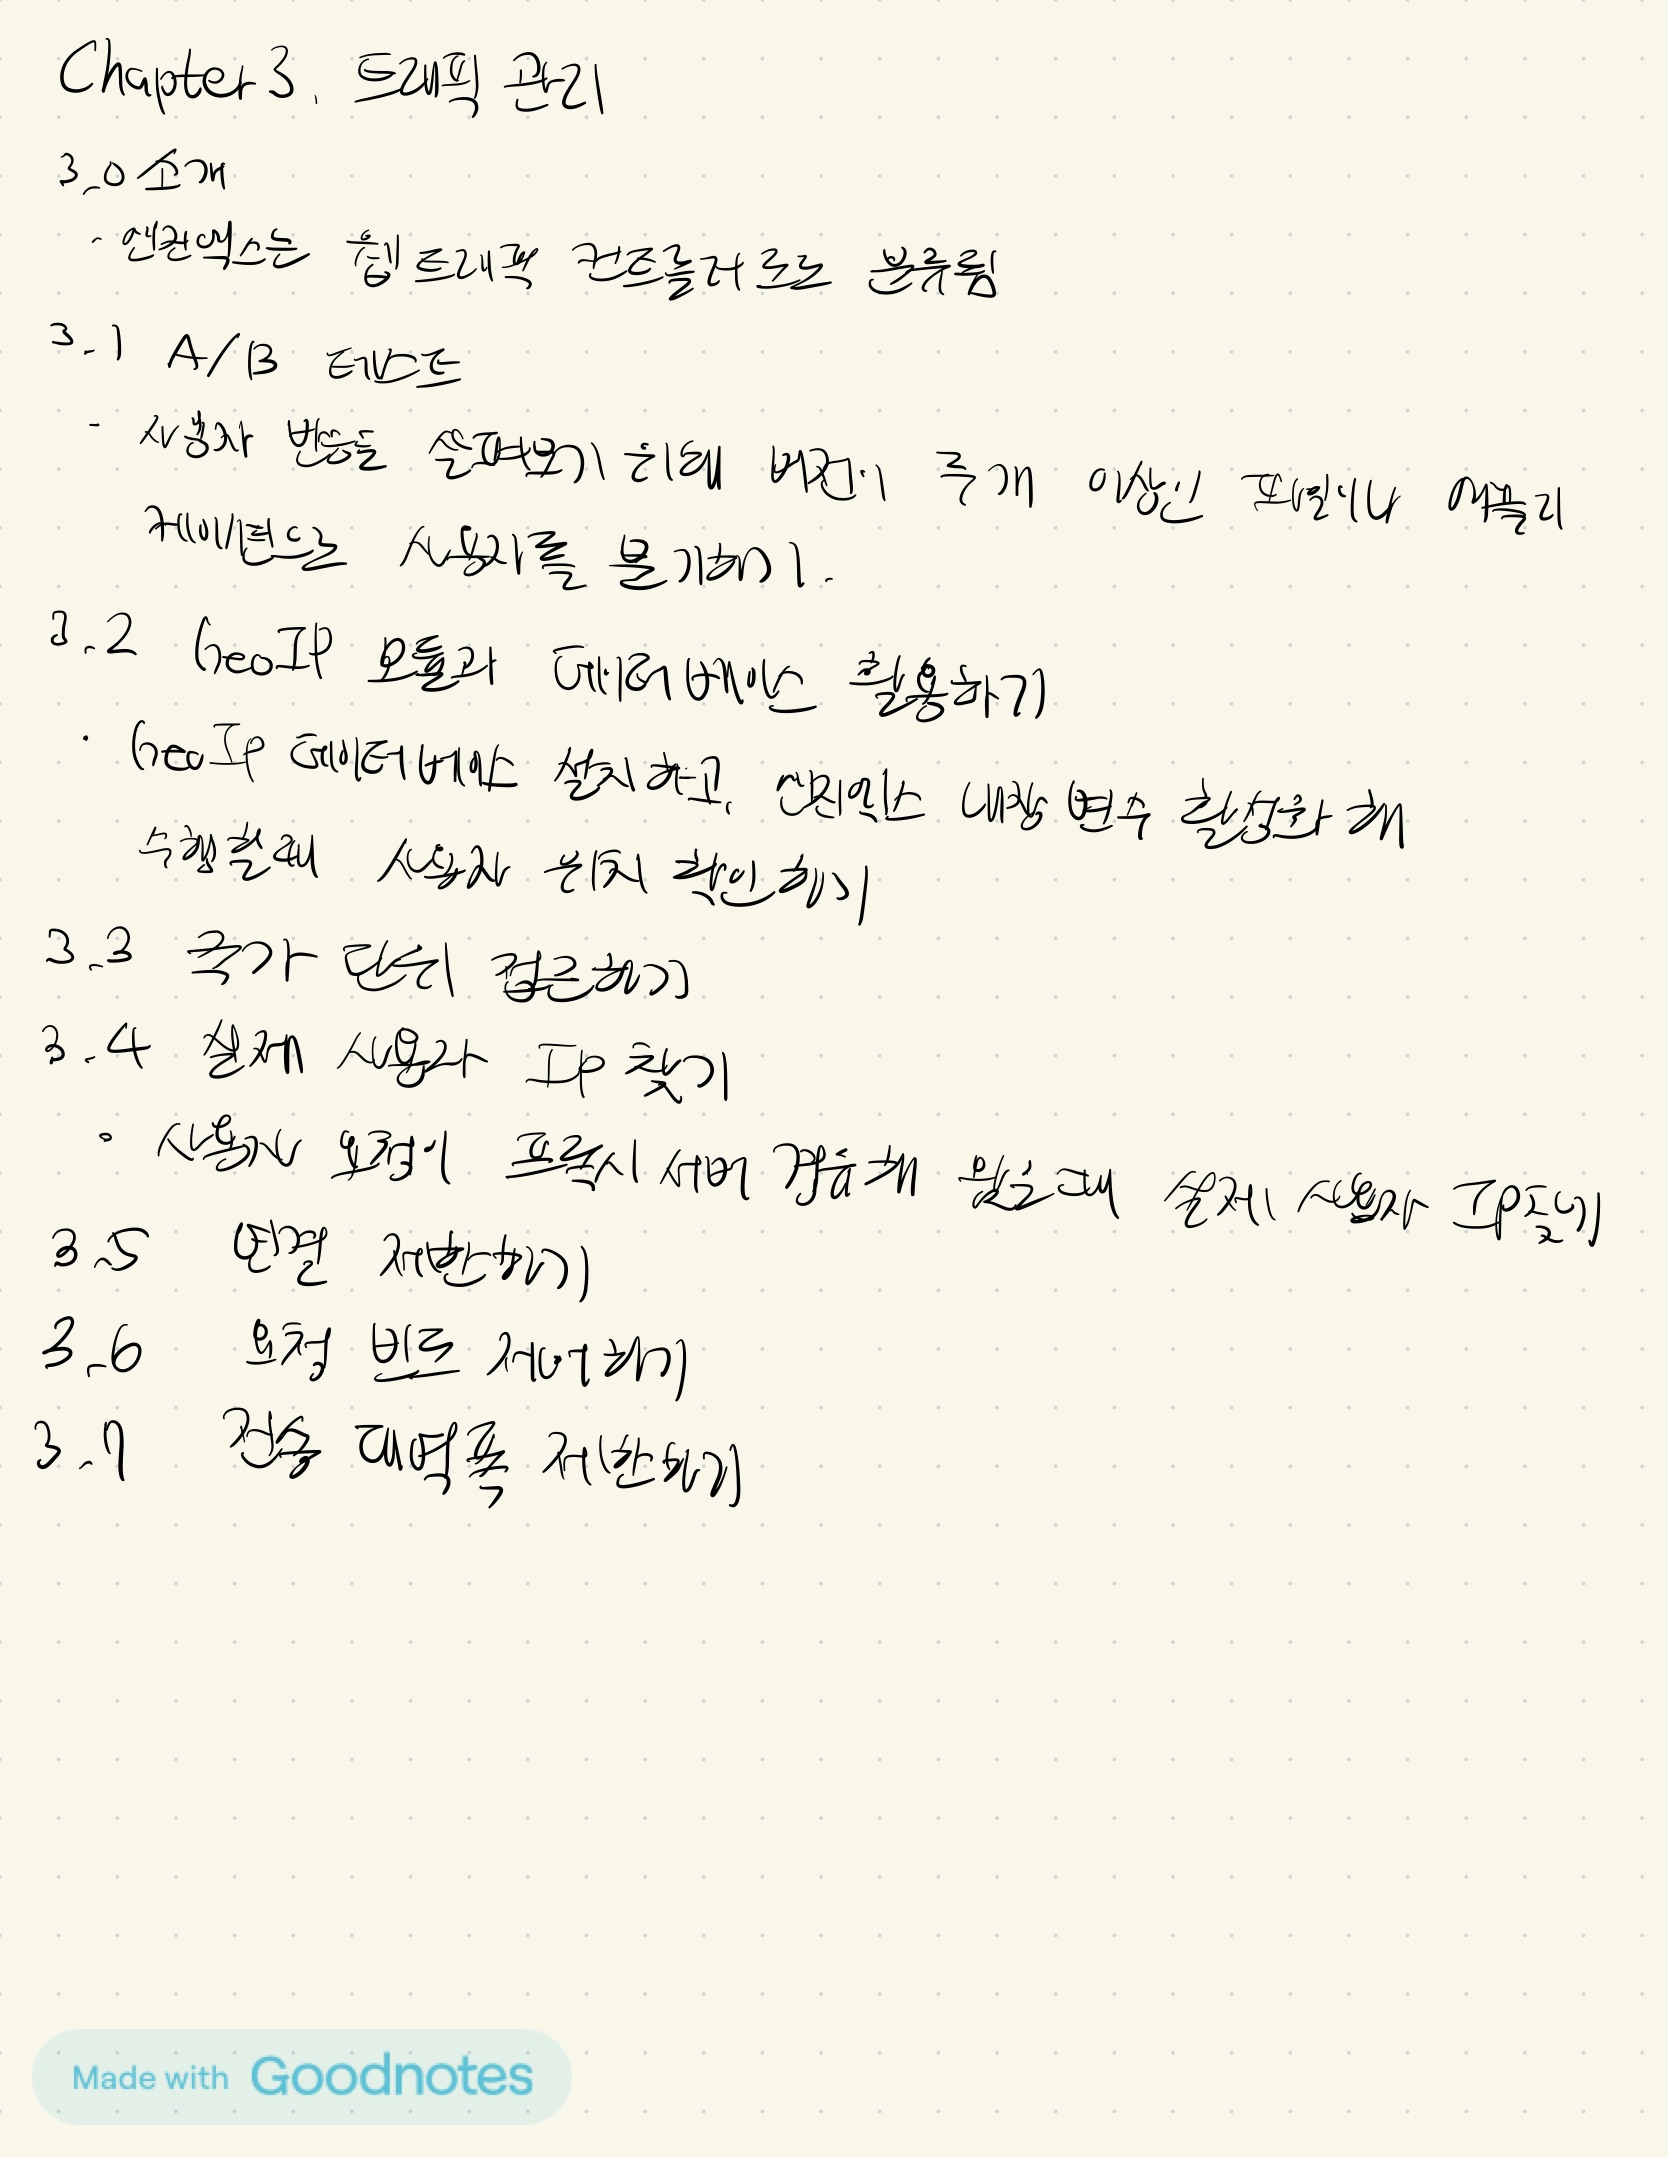 Chapter 3. 트래픽 관리
3.0 소개
- 엔진엑스는 웹 트래픽 컨트롤러로도 분류됨
3.1 A/B 테스트
- 사용자 반응을 살펴보기 위해 버전이 두개 이상인 파일이나 어플리
케이션으로 사용자를 분기하기.
3.2 GeoIP 모듈과 데이터베이스 활용하기
· GeoIP 데이터베이스 설치하고, 엔진엑스 내장 변수 활성화 해
수행할때 사용자 위치 확인하기
3.3 국가 단위 접근하기
3.4 실제 사용자 IP 찾기
· 사용자 요청이 프록시 서버 경유해 왔을때 실제 사용자 IP찾기
3.5 연결 제한하기
3.6 요청 빈도 제어하기
3.7 전송 대역폭 제한하기
Made with Goodnotes